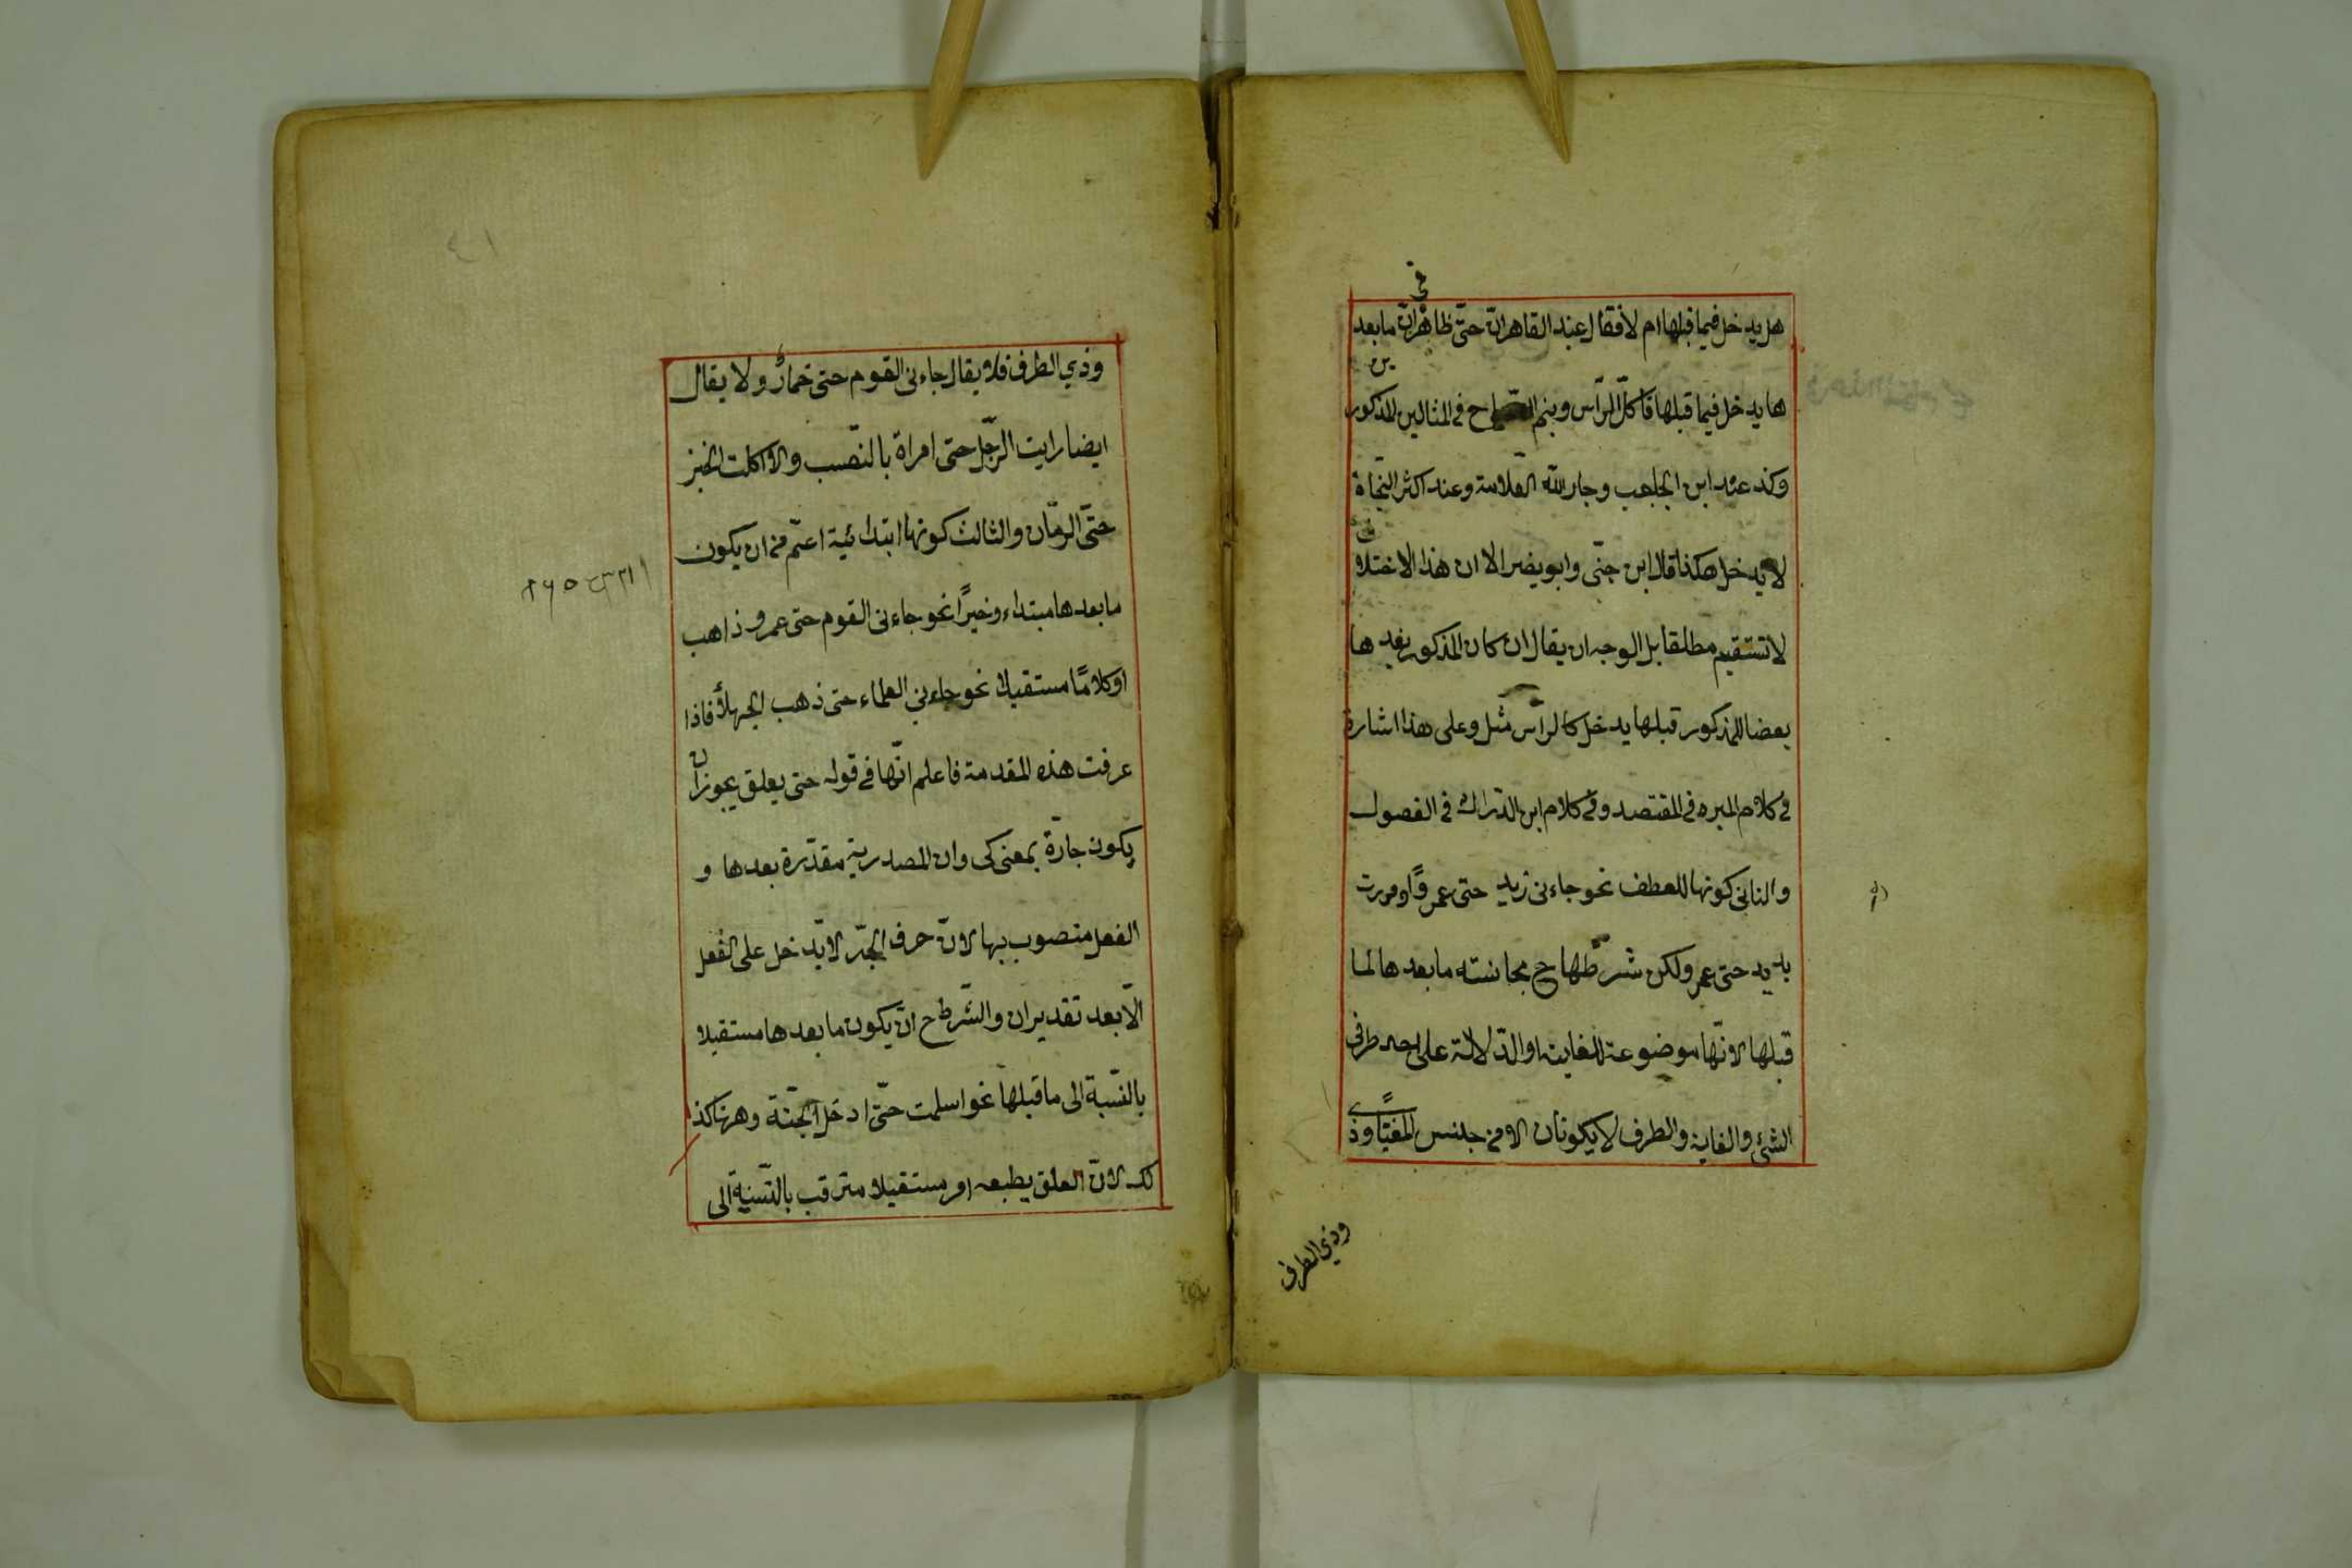 هل يدخل فيما قبلها ام لا فقال عبد القاهر انّ حتّى ظاهر في انّ ما بعد
ها يدخل فيما قبلها فاكل الرّأس وينم الصّباح في المثالين المذكورين
وكذ عند ابن الحاجب وجار اللّه العّلامة وعند اكثر النّحاة
لا يدخل هكذا قال ابن جنّى وابو يضر الا ان هذا الاختلاف
لا تستقيم مطلقا بل الوجه ان يقال ان كان المذكور بعد ها
بعضا للمذكور قبلها يدخل كالرأس مثل وعلى هذا اشارة
في كلام المبره في المقتصد وفي كلام ابن الدّراك في الفصول
والثانى كونها للعطف نحو جاءنى زيد حتى عمروًا ومررت
يزيد حتى عمر ولكن شرطها ح مجانسته ما بعدها لما
قبلها لانّها موضوعة للغاية او الدّلالة على احد طرفى
الشئ والغاية والطرف لا يكونان الا من جنس المغيّا وذى
وذي الطرف
وذي الطرف فلا يقال جاءنى القوم حتى حمارٌ ولا يقال
ايضا رايت الرّجل حتى امراة بالنّصب ولا اكلت الخبز
حتّى الرمّان والثالث كونها ابتدائية اعمّ من ان يكون
ما بعدها مبتداء وخبرًا نحو جاءنى القوم حتى عمرو ذاهب
او كلامًا مستقيلا نحو جاءنى العلماء حتى ذهب الجهلاء فاذا
عرفت هذه المقدمة فاعلم انّها في قوله حتى يعلق يجوز ان
يكون جارّة بمعنى كى وان المصدرية مقدّرة بعدها و
الفعل منصوب بها لانّ حرف الجّر لا يّدخل على الفعل
الّا بعد تقدير ان والشّرط ح انّ يكون ما بعدها مستقيلا
بالنّسبة الى ما قبلها نحو اسلمت حتّى ادخل الجّنة وهرناكذ
لك لانّ العلق يطبعه امر مستقيلا مترقب بالنّسبة الى